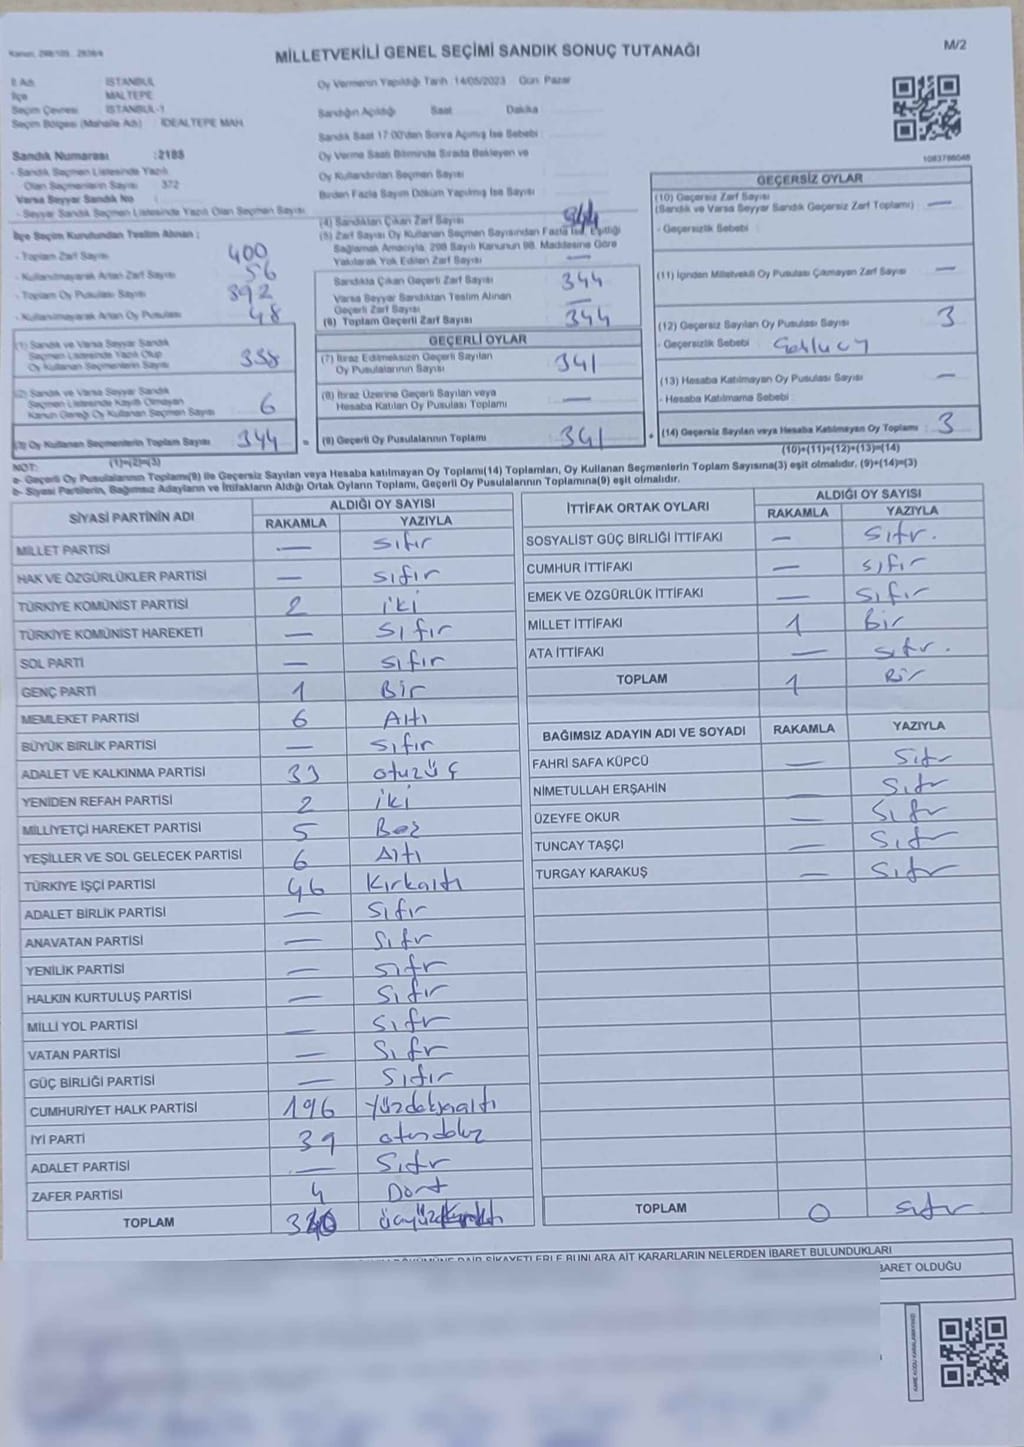 MİLLETVEKİLİ GENEL SEÇİMİ SANDIK SONUÇ TUTANAĞI
M/2
İl Adı : İSTANBUL
İlçe : MALTEPE
Seçim Çevresi : İSTANBUL-1
Seçim Bölgesi (Mahalle Adı) : İDEALTEPE MAH.
Sandık Numarası : 2185
- Sandık Seçmen Listesinde Yazılı
Olan Seçmenlerin Sayısı : 372
Varsa Seyyar Sandık No
- Seyyar Sandık Seçmen Listesinde Yazılı Olan Seçmen Sayısı
İlçe Seçim Kurulundan Teslim Alınan :
- Toplam Zarf Sayısı 400
- Kullanılmayarak Artan Zarf Sayısı 56
- Toplam Oy Pusulası Sayısı 392
- Kullanılmayarak Artan Oy Pusulası 48
(1) Sandık ve Varsa Seyyar Sandık
Seçmen Listesinde Yazılı Olup
Oy Kullanan Seçmenlerin Sayısı 338
(2) Sandık ve Varsa Seyyar Sandık
Seçmen Listesinde Kayıtlı Olmayan
Kanun Gereği Oy Kullanan Seçmen Sayısı 6
(3) Oy Kullanan Seçmenlerin Toplam Sayısı 344 =
(1)+(2)=(3)
Oy Vermenin Yapıldığı Tarih :14/05/2023 Gün: Pazar
Sandığın Açıldığı Saat Dakika
Sandık Saat 17:00'den Sonra Açılmış İse Sebebi :
Oy Verme Saati Bitiminde Sırada Bekleyen ve
Oy Kullandırılan Seçmen Sayısı
Birden Fazla Sayım Döküm Yapılmış İse Sayısı
(4) Sandıktan Çıkan Zarf Sayısı 344
(5) Zarf Sayısı Oy Kullanan Seçmen Sayısından Fazla İse, Eşitliği
Sağlamak Amacıyla, 298 Sayılı Kanunun 98. Maddesine Göre
Yakılarak Yok Edilen Zarf Sayısı —
Sandıkta Çıkan Geçerli Zarf Sayısı 344
Varsa Seyyar Sandıktan Teslim Alınan
Geçerli Zarf Sayısı —
(6) Toplam Geçerli Zarf Sayısı 344
GEÇERLİ OYLAR
(7) İtiraz Edilmeksizin Geçerli Sayılan
Oy Pusulalarının Sayısı 341
(8) İtiraz Üzerine Geçerli Sayılan veya
Hesaba Katılan Oy Pusulası Toplamı —
(9) Geçerli Oy Pusulalarının Toplamı 341 +
1083786048
GEÇERSİZ OYLAR
(10) Geçersiz Zarf Sayısı
(Sandık ve Varsa Seyyar Sandık Geçersiz Zarf Toplamı) —
- Geçersizlik Sebebi :
(11) İçinden Milletvekili Oy Pusulası Çıkmayan Zarf Sayısı —
(12) Geçersiz Sayılan Oy Pusulası Sayısı 3
- Geçersizlik Sebebi :
(13) Hesaba Katılmayan Oy Pusulası Sayısı —
- Hesaba Katılmama Sebebi :
(14) Geçersiz Sayılan veya Hesaba Katılmayan Oy Toplamı : 3
(10)+(11)+(12)+(13)=(14)
NOT:
a- Geçerli Oy Pusulalarının Toplamı(9) ile Geçersiz Sayılan veya Hesaba katılmayan Oy Toplamı(14) Toplamları, Oy Kullanan Seçmenlerin Toplam Sayısına(3) eşit olmalıdır. (9)+(14)=(3)
b- Siyasi Partilerin, Bağımsız Adayların ve İttifakların Aldığı Ortak Oyların Toplamı, Geçerli Oy Pusulalarının Toplamına(9) eşit olmalıdır.
SİYASİ PARTİNİN ADI ALDIĞI OY SAYISI
RAKAMLA YAZIYLA
MİLLET PARTİSİ — sıfır
HAK VE ÖZGÜRLÜKLER PARTİSİ — sıfır
TÜRKİYE KOMÜNİST PARTİSİ 2 iki
TÜRKİYE KOMÜNİST HAREKETİ — sıfır
SOL PARTİ — sıfır
GENÇ PARTİ 1 Bir
MEMLEKET PARTİSİ 6 Altı
BÜYÜK BİRLİK PARTİSİ — sıfır
ADALET VE KALKINMA PARTİSİ 33 otuzüç
YENİDEN REFAH PARTİSİ 2 iki
MİLLİYETÇİ HAREKET PARTİSİ 5 Beş
YEŞİLLER VE SOL GELECEK PARTİSİ 6 Altı
TÜRKİYE İŞÇİ PARTİSİ 46 Kırkaltı
ADALET BİRLİK PARTİSİ — sıfır
ANAVATAN PARTİSİ — sıfr
YENİLİK PARTİSİ — sıfr
HALKIN KURTULUŞ PARTİSİ — sıfır
MİLLİ YOL PARTİSİ — sıfr
VATAN PARTİSİ — sıfr
GÜÇ BİRLİĞİ PARTİSİ — sıfır
CUMHURİYET HALK PARTİSİ 196 yüzdoksanaltı
İYİ PARTİ 39 otuzdokuz
ADALET PARTİSİ — Sıfr
ZAFER PARTİSİ 4 Dört
TOPLAM 340
İTTİFAK ORTAK OYLARI ALDIĞI OY SAYISI
RAKAMLA YAZIYLA
SOSYALİST GÜÇ BİRLİĞİ İTTİFAKI — sıfır.
CUMHUR İTTİFAKI — sıfır
EMEK VE ÖZGÜRLÜK İTTİFAKI — sıfır
MİLLET İTTİFAKI 1 Bir
ATA İTTİFAKI — sıfır.
TOPLAM 1 Bir
BAĞIMSIZ ADAYIN ADI VE SOYADI RAKAMLA YAZIYLA
FAHRİ SAFA KÜPCÜ — Sıfır
NİMETULLAH ERŞAHİN — Sıfır
ÜZEYFE OKUR — Sıfır
TUNCAY TAŞÇI — Sıfır
TURGAY KARAKUŞ — Sıfır
TOPLAM 0 sıfır
ŞİKAYETLERLE BUNLARA AİT KARARLARIN NELERDEN İBARET BULUNDUKLARI
BARET OLDUĞU